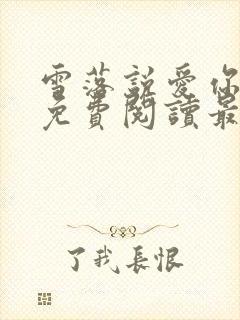 雪落説愛你
免費閱讀最
了我長恨